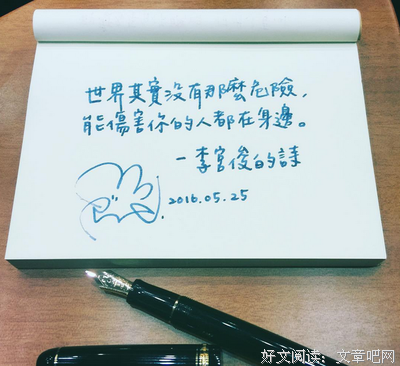 世界其實沒有那麼危險，
能傷害你的人都在身邊。
—李宮俊的詩
2016.05.25
好文阅读：文章吧网